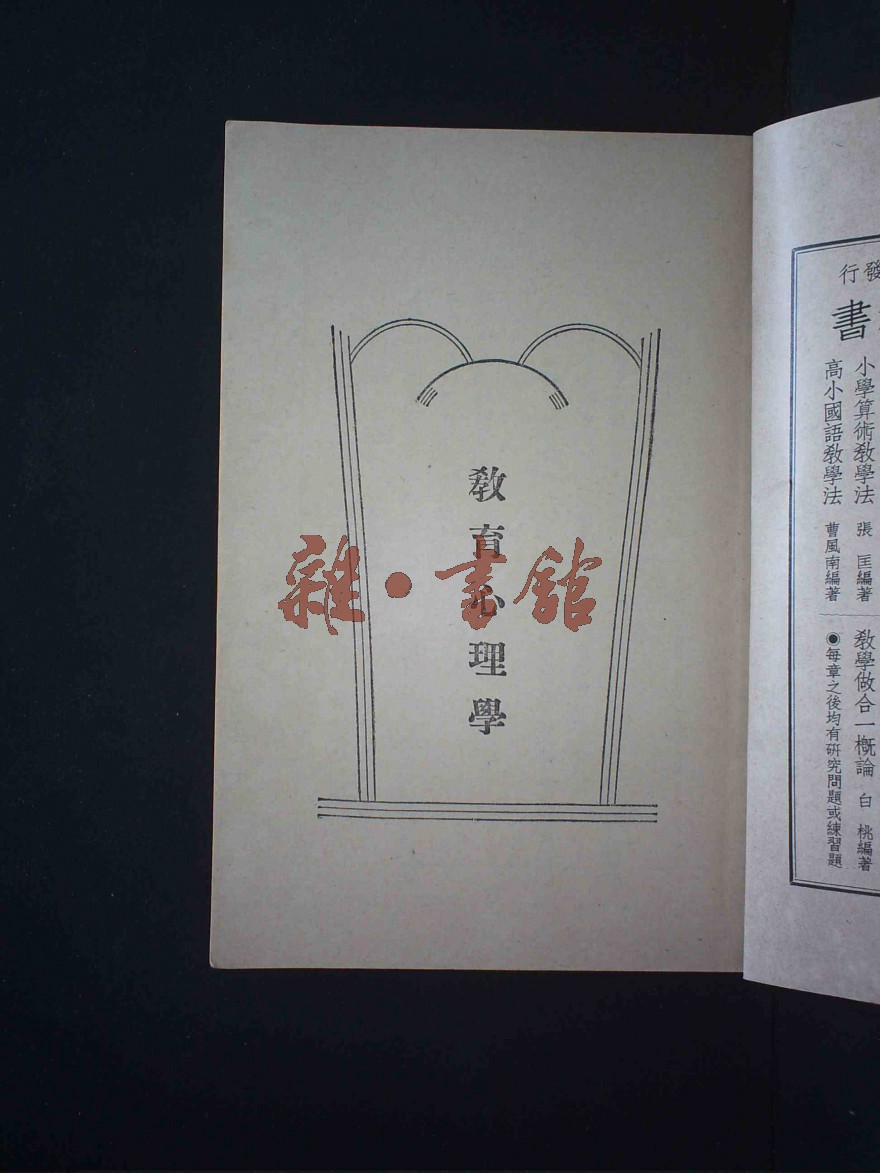 教育心理學
雜·書館
發行
書
小學算術教學法 張匡編著
高小國語教學法 曹風南編著
教學做合一概論 白桃編著
◉每章之後均有研究問題或練習題